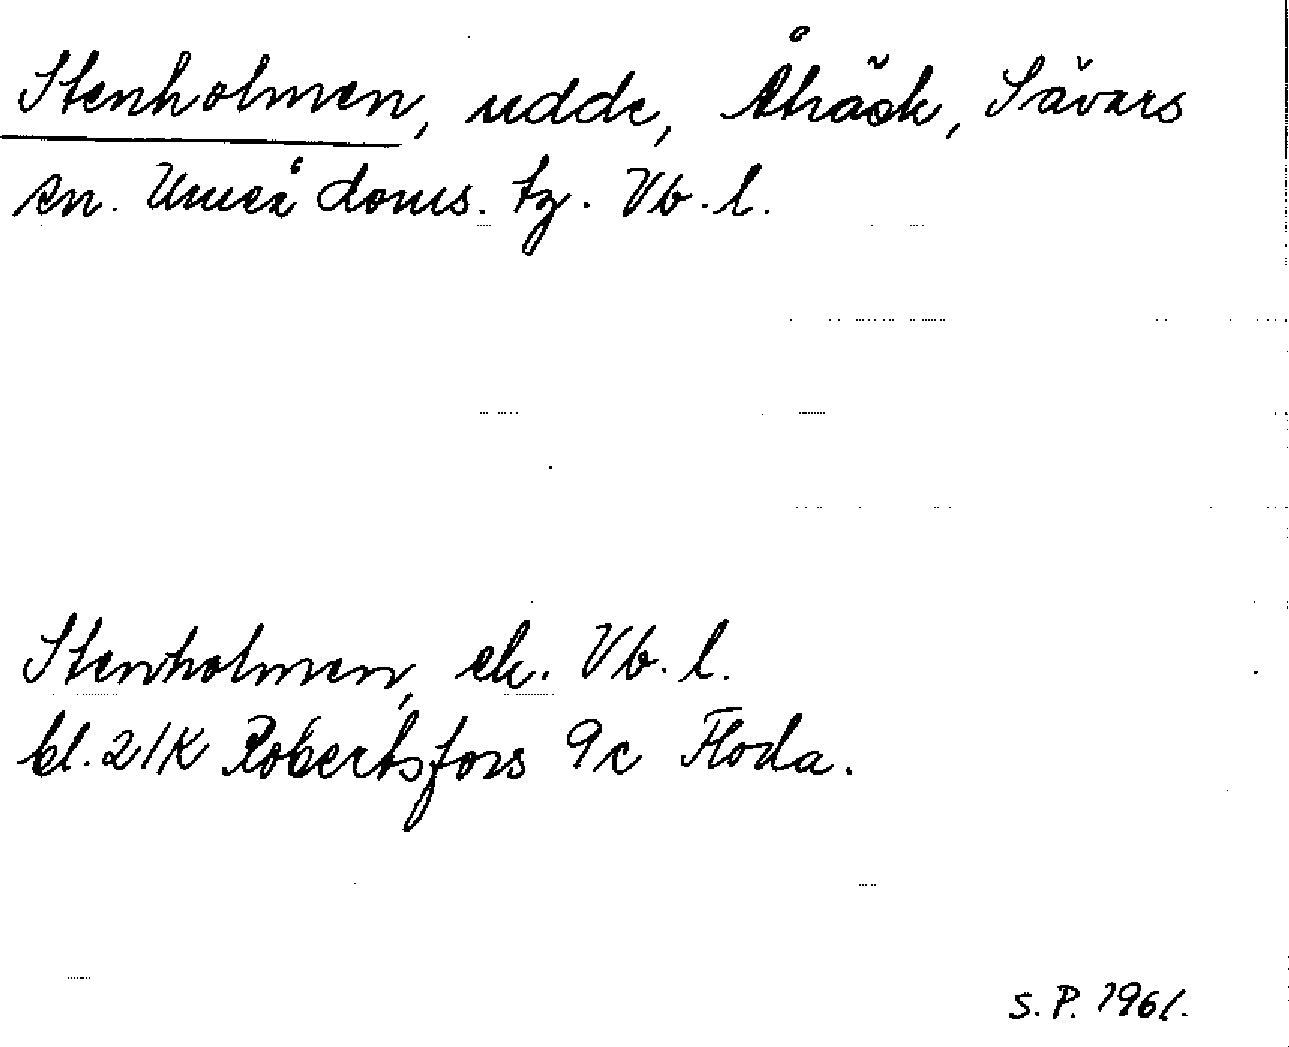 Stenholmen, udde, Åhäck, Sävars
sn. Umeå doms. tg. Vb. l.
Stenholmen, ek. Vb. l.
bl. 21K Robertsfors 9c Floda.
S. P. 1961.